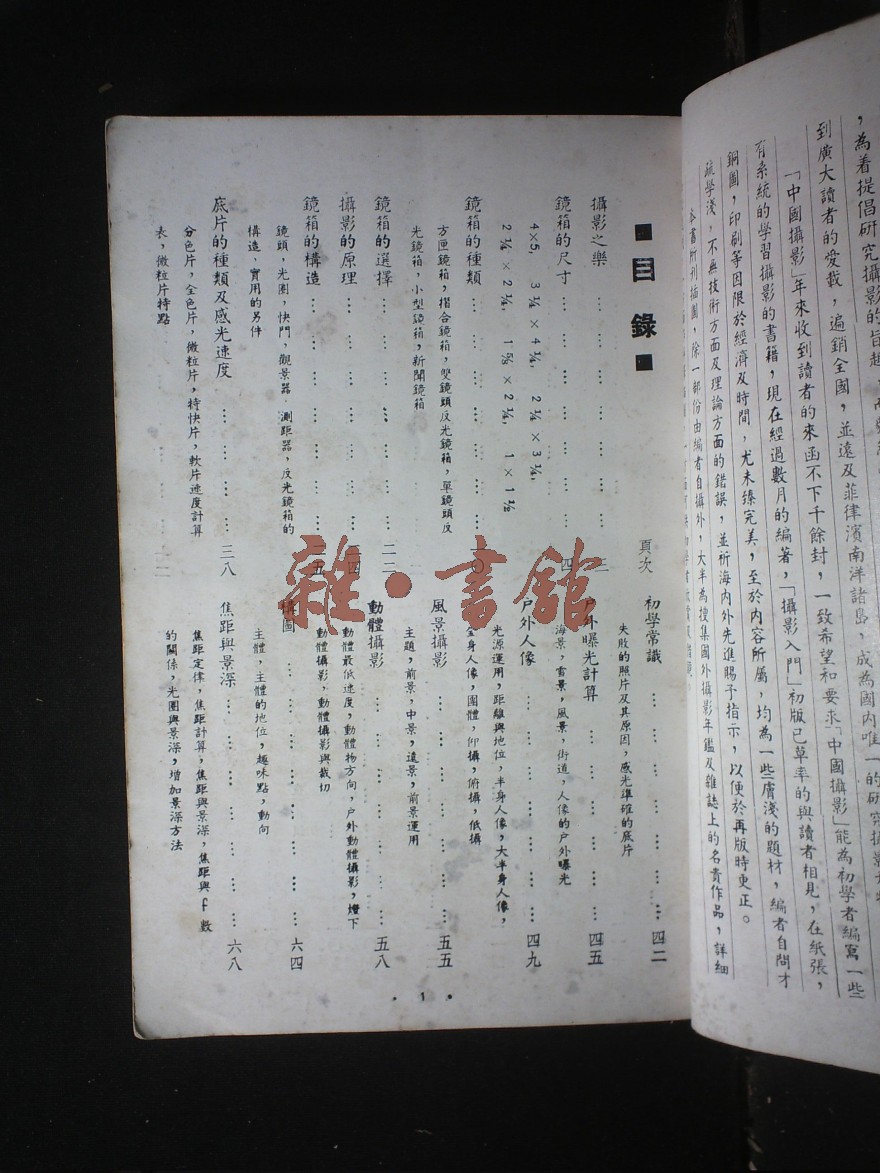 ，為着提倡研究攝影的旨趣，
到廣大讀者的愛載，遍銷全國，並遠及菲律濱南洋諸島，成為國內唯一的研究攝影
「中國攝影」年來收到讀者的來函不下千餘封，一致希望和要求「中國攝影」能為初學者編寫一些
有系統的學習攝影的書籍，現在經過數月的編著，「攝影入門」初版已草率的與讀者相見，在紙張，
銅圖，印刷等因限於經濟及時間，尤未臻完美，至於內容所屬，均為一些膚淺的題材，編者自問才
疏學淺，不無技術方面及理論方面的錯誤，並祈海內外先進賜予指示，以便於再版時更正。
本書所刊插圖，除一部份由編者自攝外，大半為搜集國外攝影年鑑及雜誌上的名貴作品，詳細
■目錄■
頁次
攝影之樂………………
鏡箱的尺寸………………四
4×5， 3¼×4¼， 2¼×3¼，
2¼×2¼， 1⅝×2¼， 1×1½
鏡箱的種類………………一〇
方匣鏡箱，摺合鏡箱，雙鏡頭反光鏡箱，單鏡頭反
光鏡箱，小型鏡箱，新聞鏡箱
鏡箱的選擇………………二二
攝影的原理………………二四
鏡箱的構造………………五
鏡頭，光圈，快門，觀景器，測距器，反光鏡箱的
構造，實用的另件
底片的種類及感光速度………………三八
分色片，全色片，微粒片，特快片，軟片速度計算
表，微粒片特點
初學常識………………四二
失敗的照片及其原因，感光準確的底片
戶外曝光計算………………四五
海景，雪景，風景，街道，人像的户外曝光
户外人像………………四九
光源運用，距離與地位，半身人像，大半身人像，
全身人像，團體，仰攝，俯攝，低攝
風景攝影………………五五
主題，前景，中景，遠景，前景運用
動體攝影………………五八
動體最低速度，動體物方向，户外動體攝影，燈下
動體攝影，動體攝影與裁切
構圖………………六四
主體，主體的地位，趣味點，動向
焦距與景深………………六八
焦距定律，焦距計算，焦距與景深，焦距與f數
的關係，光圈與景深，增加景深方法
·1·
雜·書館